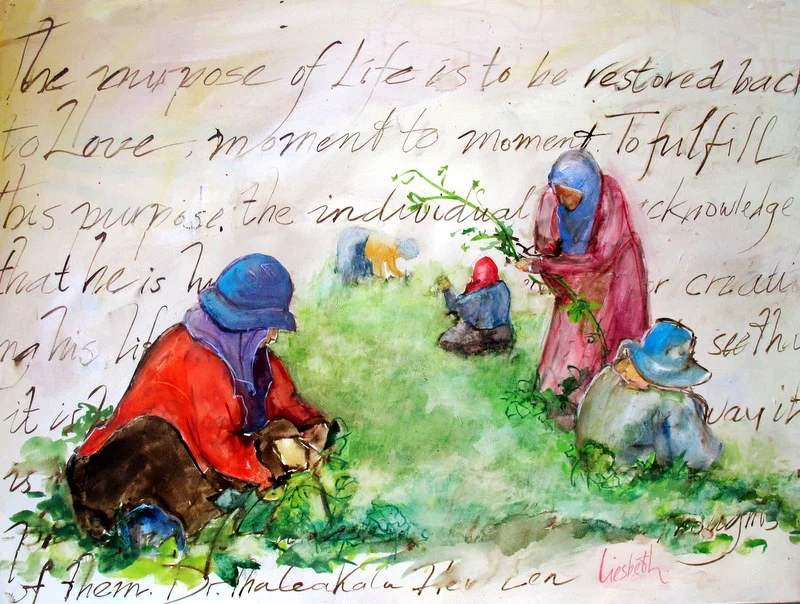 The purpose of Life is to be restored back
to Love, moment to moment. To fulfill
this purpose, the individual cknowledge
that he is r creati
ng his lif see tha
it is way it
is
of them. Dr.
Liesbeth